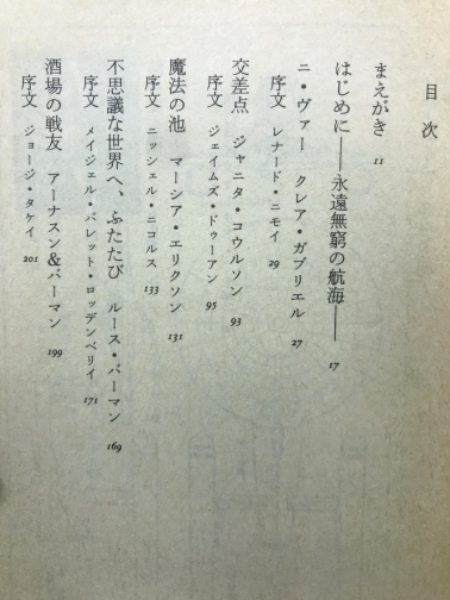 目次
まえがき 11
はじめに――永遠無窮の航海―― 17
ニ・ヴァー クレア・ガブリエル 27
序文 レナード・ニモイ 29
交差点 ジャニタ・コウルソン 93
序文 ジェイムズ・ドゥーアン 95
魔法の池 マーシア・エリクソン 131
序文 ニッシェル・ニコルス 133
不思議な世界へ、ふたたび ルース・バーマン 169
序文 メイジェル・バレット・ロッデンベリイ 171
酒場の戦友 アーナスン&バーマン 199
序文 ジョージ・タケイ 201